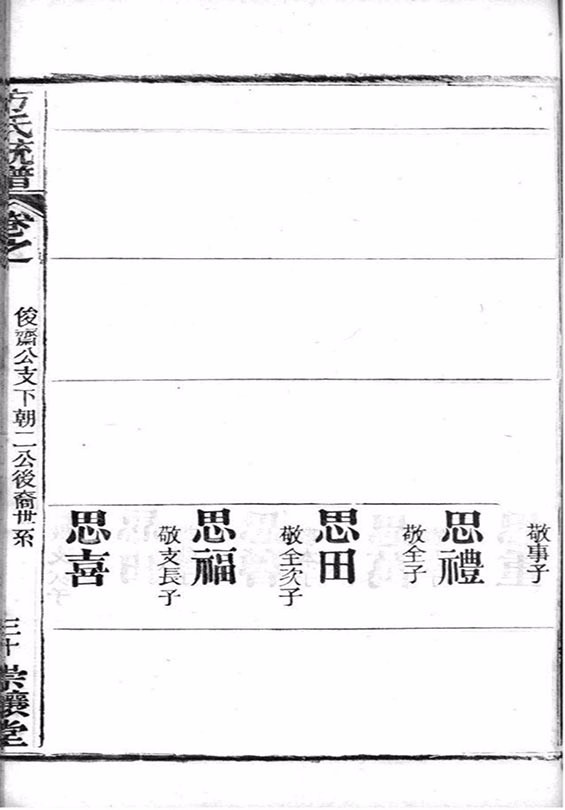 敬事子
思禮
敬全子
思田
敬全次子
思福
敬支長子
思喜
方氏統譜
卷之
俊齋公支下朝二公後裔世系
三十
崇讓堂